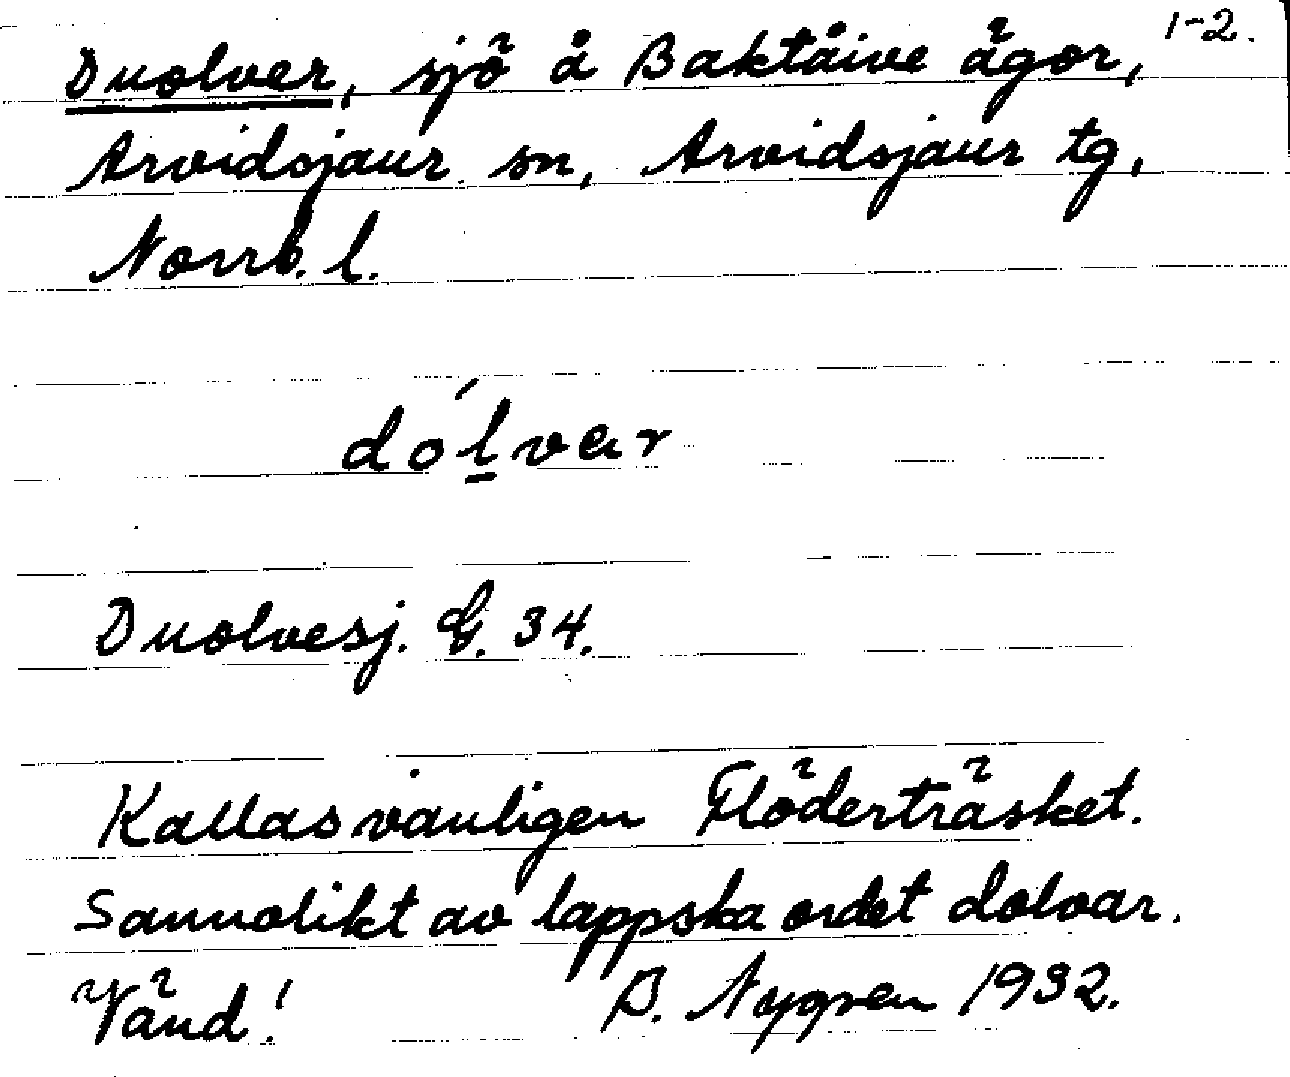 1-2.
Duolver, sjö å Baktåive ägor,
Arvidsjaur sn, Arvidsjaur tg,
Norrb. l.
dólvar
Duolvesj. G. 34.
Kallas vanligen Flöderträsket.
Sannolikt av lappska ordet dolvar.
Vänd! B. Nygren 1932.